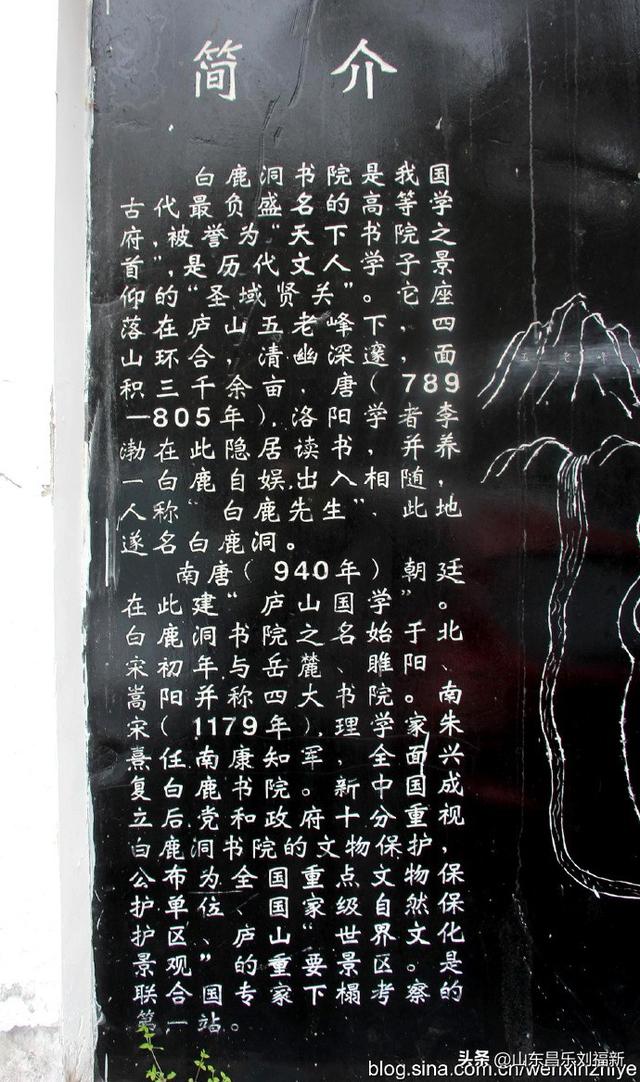 简 介
白鹿洞书院是我国
古代最负盛名的高等学
府,被誉为“天下书院之
首”,是历代文人学子景
仰的“圣域贤关”。它座
落在庐山五老峰下,四
山环合,清幽深邃,面
积三千余亩.唐(789
一805年),洛阳学者李
渤在此隐居读书,并养
一白鹿自娱.出入相随,
人称“白鹿先生”.此地
遂名白鹿洞。
南唐(940年)朝廷
在此建“庐山国学”。
白鹿洞书院之名始于北
宋初年与岳麓、睢阳、
嵩阳并称四大书院。南
宋(1179年),理学家朱
熹任南康知军。全面兴
复白鹿书院,新中国成
立后党和政府十分重视
白鹿洞书院的文物保护,
公布为全国重点文物保
护单位、国家级自然保
护区、庐山“世界文化
景观”的重要景区。是
联合国专家下榻考察的
第一站。
五老峰
头条 @山东昌乐刘福新
blog.sina.com.cn/wenxinzhiye